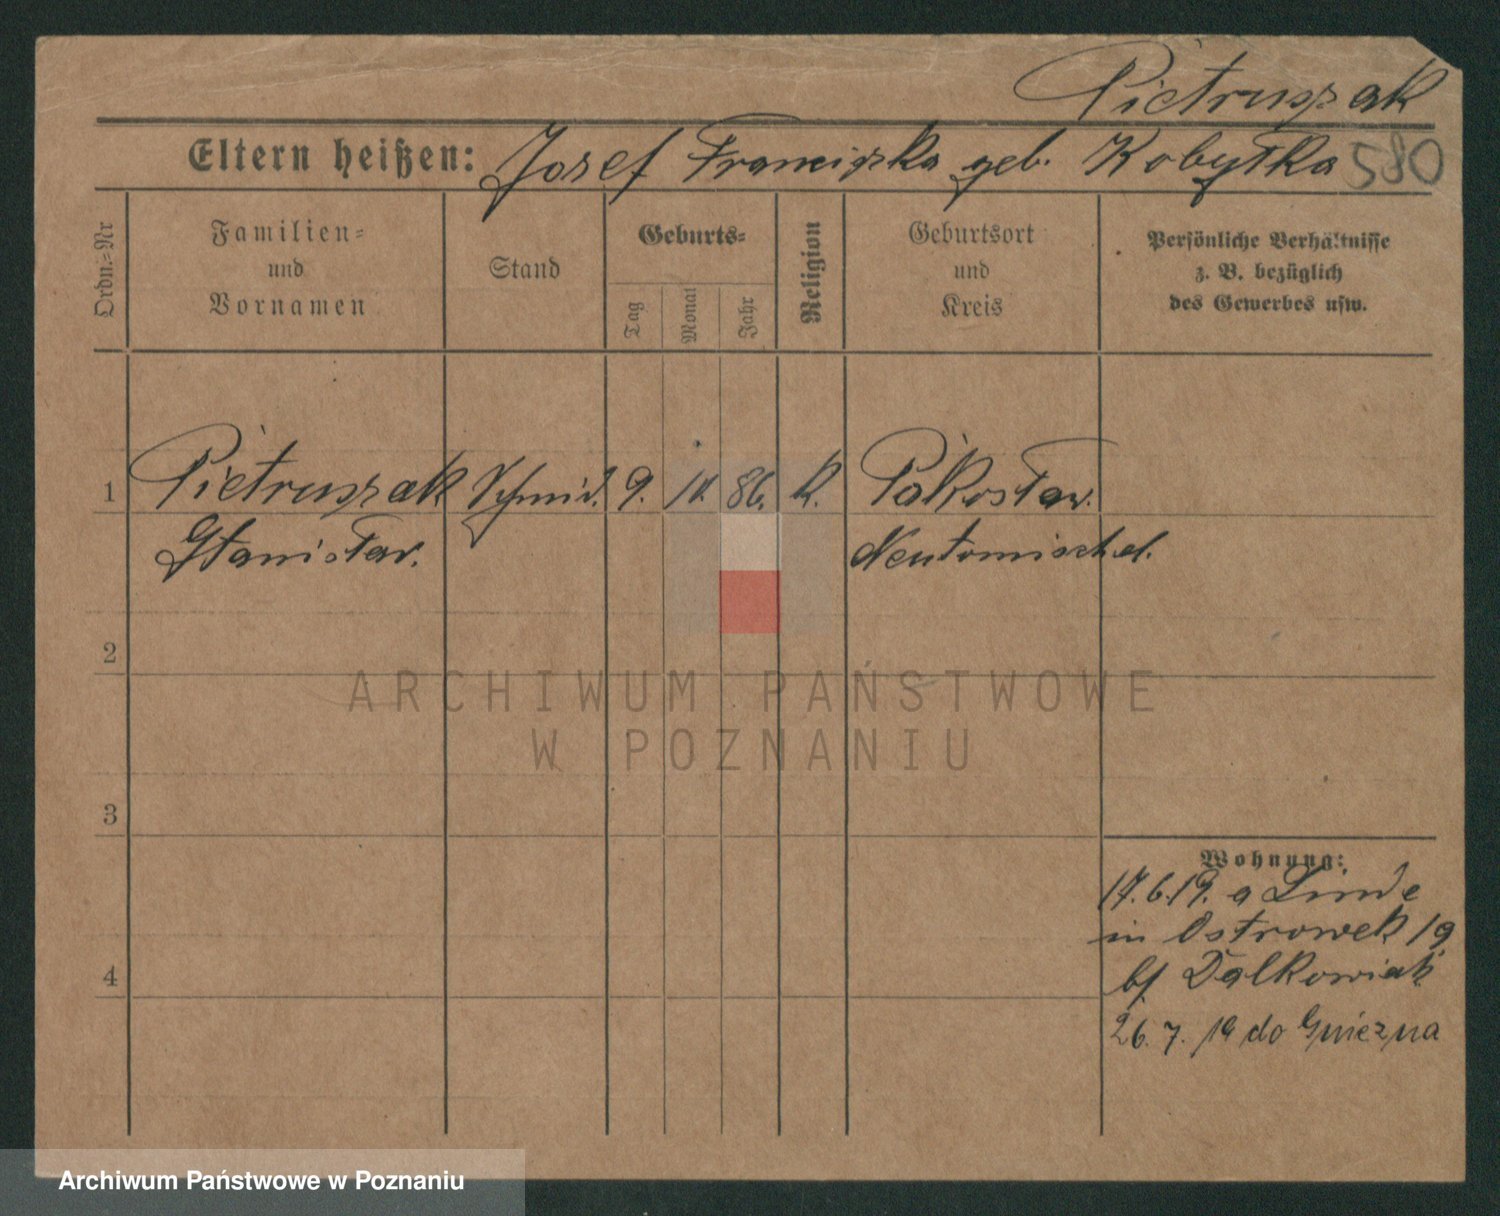 Pietruszak
Eltern heißen: Josef Franciszka geb. Kobyłka 580
Ordn.=Nr
Familien=
und
Vornamen
Stand
Geburts=
Tag
Monat
Jahr
Religion
Geburtsort
und
Kreis
Persönliche Verhältnisse
z. B. bezüglich
des Gewerbes usw.
1 Pietruszak Schmid. 9. 86. K. Pakosław.
Stanisław. Neutomischel.
2
3
4
Wohnung:
17.6.19. a Linde
in Ostrowek 19
bf Dalkowiak
26. 7. 19 do Gniezna
ARCHIWUM PAŃSTWOWE
W POZNANIU
Archiwum Państwowe w Poznaniu